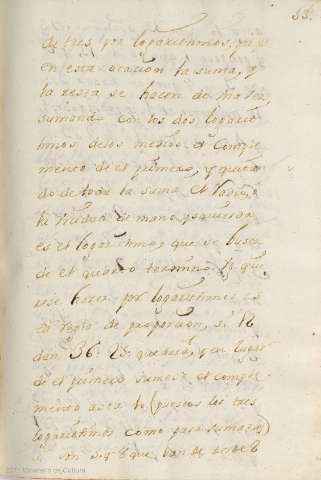 33.
de tres por logarithmos, porq̃
en esta ocacion la suma, y
la resta se hacen de una vez,
sumando con los dos logarit
thmos delos medios el Comple
mento de el primero, y quitan
do de toda la suma el
la Unidad de mano ysquierda
es el logarithmo, que se busca
de el quarto termino. Si qui
iese hacer por logarithmos es
ta regla de proporcion, si 12
dan 36. 25. que daràn, y en lugar
de el primero sumese el comple
mento a los (puestos los tres
logarithmos como para sumarse)
que van de desde 8
2021 Ministerio de Cultura